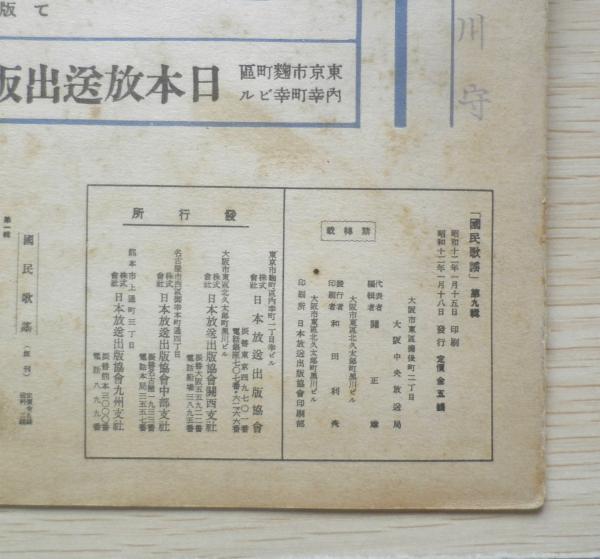 て
版
東京市麴町區
內幸町幸ビル
日本放送出版
川守
「國民歌謠」第九輯
昭和十二年一月十五日 印刷
昭和十二年一月十八日 發行 定價 金五錢
禁轉載
大阪市東區備後町二丁目
大阪中央放送局
代表者
編輯者 關正雄
大阪市東區北久太郎町黑川ビル
發行者
印刷者 和田利秀
大阪市東區北久太郎町黑川ビル
印刷所 日本放送出版協會印刷部
發行所
東京市麴町區內幸町二丁目幸ビル
株式會社 日本放送出版協會
振替東京四九七〇一番
大阪市東區北久太郎町黑川ビル
株式會社 日本放送出版協會關西支社
名古屋市西區御幸本町通四丁目
株式會社 日本放送出版協會中部支社
電話本局三五五七番
熊本市上通町三丁目
株式會社 日本放送出版協會九州支社
振替熊本三〇〇〇番
電話八九九番
國民歌謠
第一輯